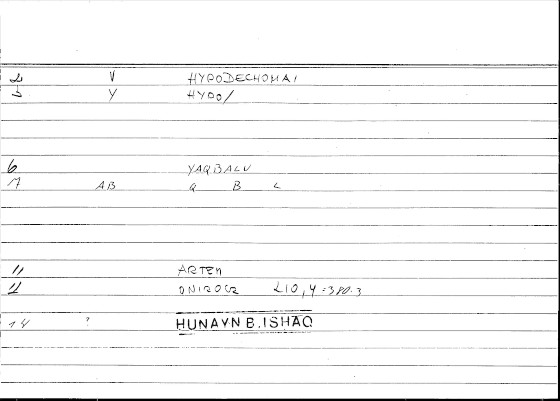 2 V HYPODECHOMAI
3 Y HYPO/
6 YAQBALU
7 AB Q B L
11 ARTEM
11 ONIROCR 210,4=380.3
14 ? HUNAYN B.ISHAQ